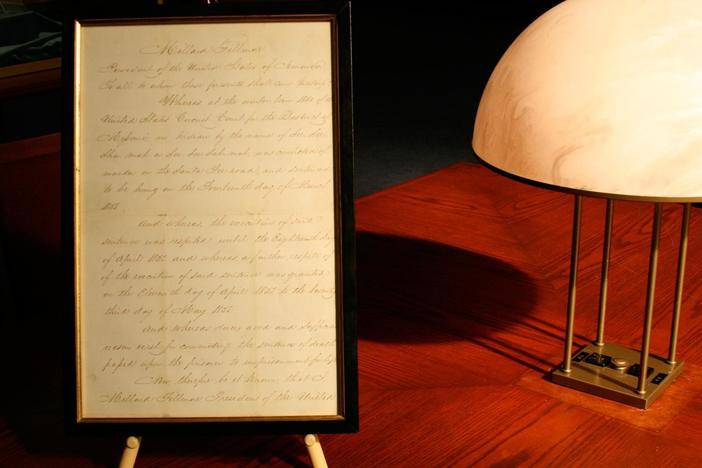 Millard Fillmore
President of the United States of America
To all to whom these presents shall come Greeting
Whereas at the winter term of the
United States Circuit Court for the District of
Missouri an Indian by the name of See See
sah ma was convicted of
murder on the Santa Fee road, and sentenced
to be hung on the Fourteenth day of March
And whereas, the execution of said
sentence was respited until the Eighteenth day
of April and whereas a further respite of
of the execution of said sentence was granted
on the Eleventh day of April to the twenty
third day of May
And whereas divers good and sufficient
reasons exist for commuting the sentence of death
passed upon the prisoner to imprisonment for life
Now therefore be it known, that I
Millard Fillmore President of the United